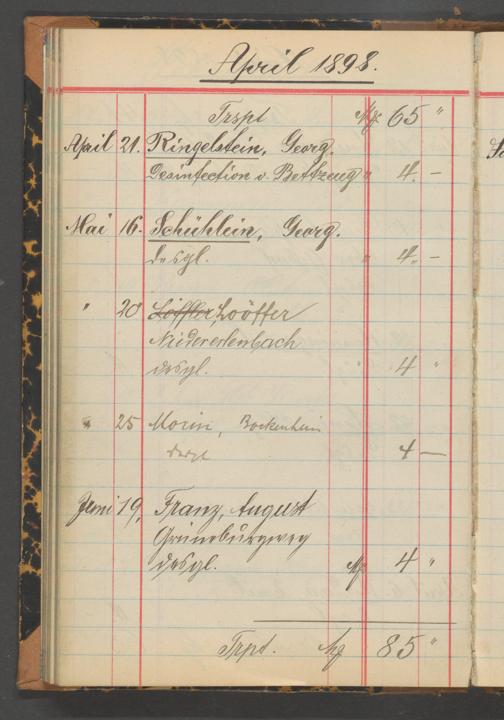 April 1898.
Trspt M 65 "
April 21. Ringelstein, Georg.
Desinfection v. Bettzeug " 4. –
Mai 16. Schühlein, Georg.
desgl. " 4. –
" 20 Löffler, Lööffer
Niedererlenbach
desgl. " 4 "
" 25 Morin, Bockenheim
desgl 4 –
Juni 19. Franz, August
Grüneburgweg
desgl. M 4 "
Trpt. M 85 "